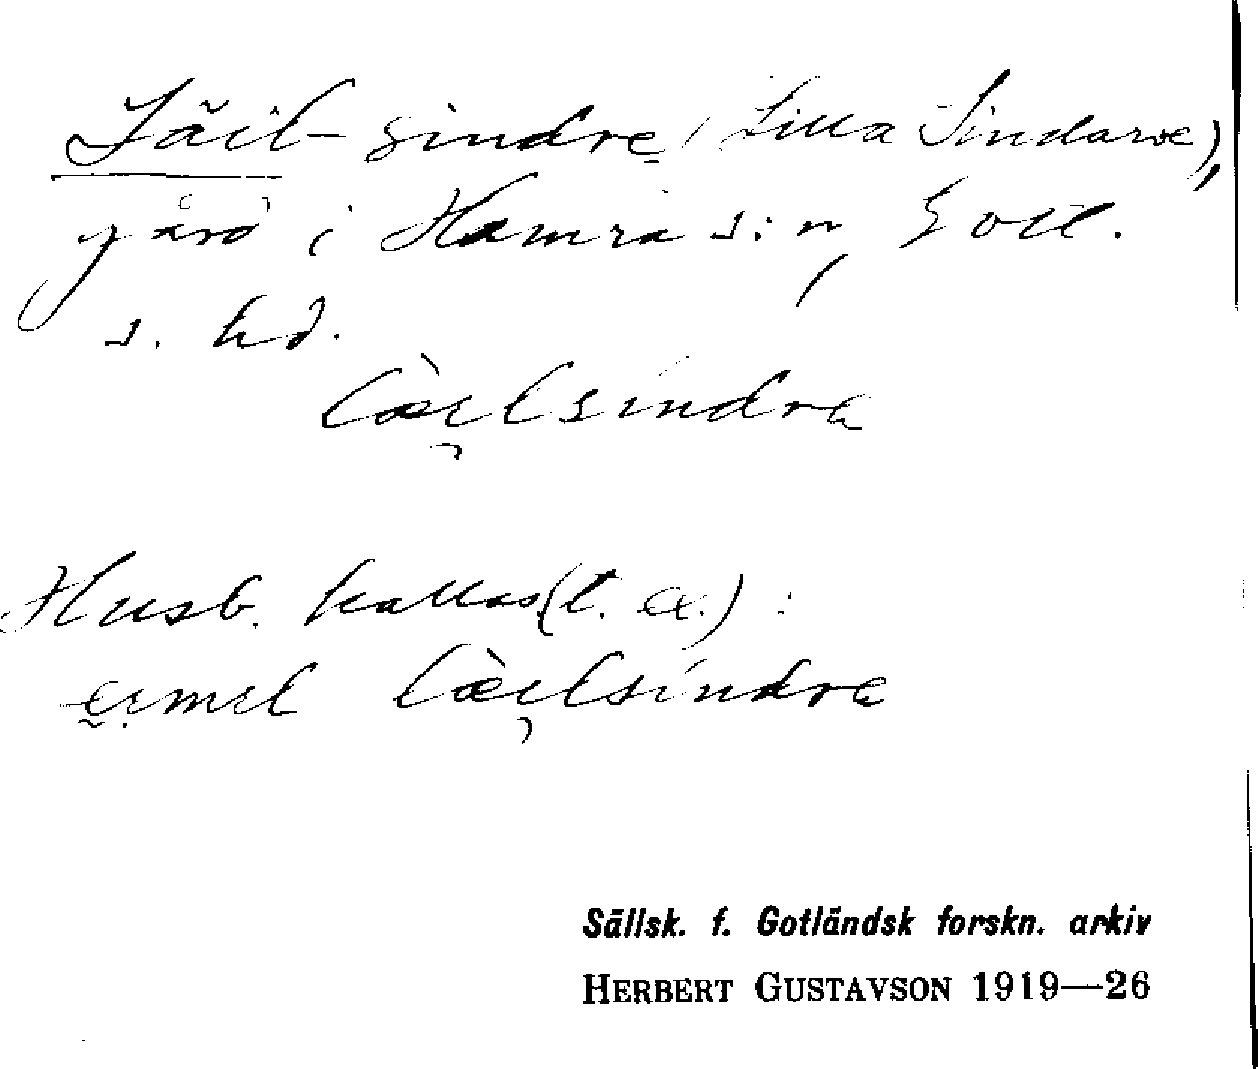 Läil-sindre (Lilla Sindarve),
gård i Hamra s:n, Gotl.
s. hd.
læi̯lsindra
Husb. kallas (t. ex.):
læi̯lsindra
Sällsk. f. Gotländsk forskn. arkiv
HERBERT GUSTAVSON 1919—26